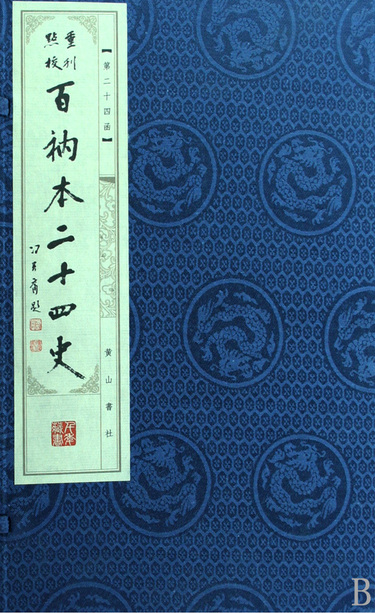 【第二十四函】
重刊
点校
百衲本二十四史
黄山書社
B